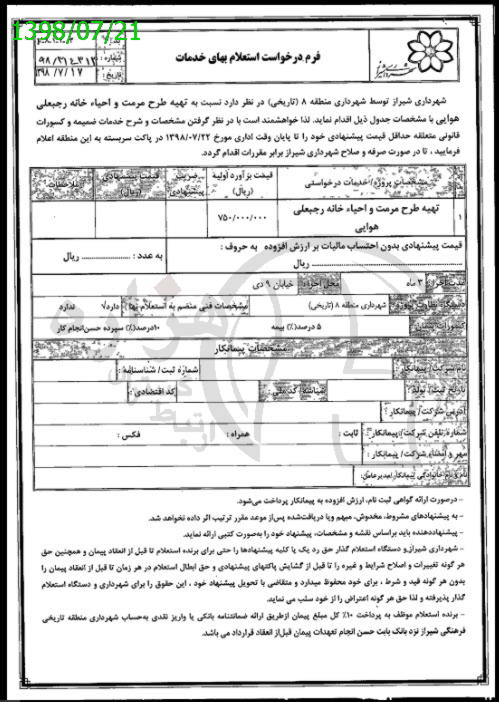 1398/07/21
فرم درخواست استعلام بهای خدمات
شماره:
تاریخ:
شهرداری شیراز توسط شهرداری منطقه ۸ (تاریخی) در نظر دارد نسبت به تهیه طرح مرمت و احیاء خانه رجبعلی
هوایی با مشخصات جدول ذیل اقدام نماید. لذا خواهشمند است با در نظر گرفتن مشخصات و شرح خدمات ضمیمه و کسورات
قانونی متعلقه حداقل قیمت پیشنهادی خود را تا پایان وقت اداری مورخ ۱۳۹۸/۰۷/۲۲ در پاکت سربسته به این منطقه اعلام
فرمایید ، تا در صورت صرفه و صلاح شهرداری شیراز برابر مقررات اقدام گردد.
مشخصات پروژه/خدمات درخواستی قیمت برآورد اولیه (ریال) ضریب پیشنهادی قیمت پیشنهادی (ریال) ملاحظات
۱ تهیه طرح مرمت و احیاء خانه رجبعلی هوایی ۷۵۰/۰۰۰/۰۰۰
قیمت پیشنهادی بدون احتساب مالیات بر ارزش افزوده به حروف :
.......... ریال به عدد : .......... ریال
مدت اجرا: ۳ ماه محل اجرا: خیابان ۹ دی
شهرداری منطقه ۸ (تاریخی) مشخصات فنی منضم به استعلام بها: دارد√ ندارد
۵ درصد(٪) بیمه ۱۰درصد(٪) سپرده حسن‌انجام کار
مشخصات پیمانکار
نام شرکت/ پیمانکار: شماره ثبت/ شناسنامه :
تاریخ ثبت/ تولد: شناسه/ کد ملی: کد اقتصادی :
آدرس شرکت/ پیمانکار :
شماره تلفن شرکت/ پیمانکار: ثابت : همراه : فکس :
مهر و امضاء شرکت/ پیمانکار :
نام و نام خانوادگی پیمانکار/مدیرعامل:
– درصورت ارائه گواهی ثبت نام، ارزش افزوده به پیمانکار پرداخت می‌شود.
– به پیشنهادهای مشروط، مخدوش، مبهم ویا دریافت‌شده پس‌از موعد مقرر ترتیب اثر داده نخواهد شد.
– پیشنهاددهنده باید براساس نقشه و مشخصات، پیشنهاد خود را به‌صورت کتبی ارائه نماید.
– شهرداری شیراز و دستگاه استعلام گذار حق رد یک یا کلیه پیشنهادها را حتی برای برنده استعلام تا قبل از انعقاد پیمان و همچنین حق
هر گونه تغییرات و اصلاح شرایط و غیره را تا قبل از گشایش پاکتهای پیشنهادی و حق ابطال استعلام در هر زمان تا قبل از انعقاد پیمان را
بدون هر گونه قید و شرط ، برای خود محفوظ میدارد و متقاضی با تحویل پیشنهاد خود ، این حقوق را برای شهرداری و دستگاه استعلام
گذار پذیرفته و لذا حق هر گونه اعتراض را از خود سلب می نماید.
– برنده استعلام موظف به پرداخت ۱۰٪ کل مبلغ پیمان ازطریق ارائه ضمانتنامه بانکی یا واریز نقدی به‌حساب شهرداری منطقه تاریخی
فرهنگی شیراز نزد بانک بابت حسن انجام تعهدات پیمان قبل‌از انعقاد قرارداد می باشد.